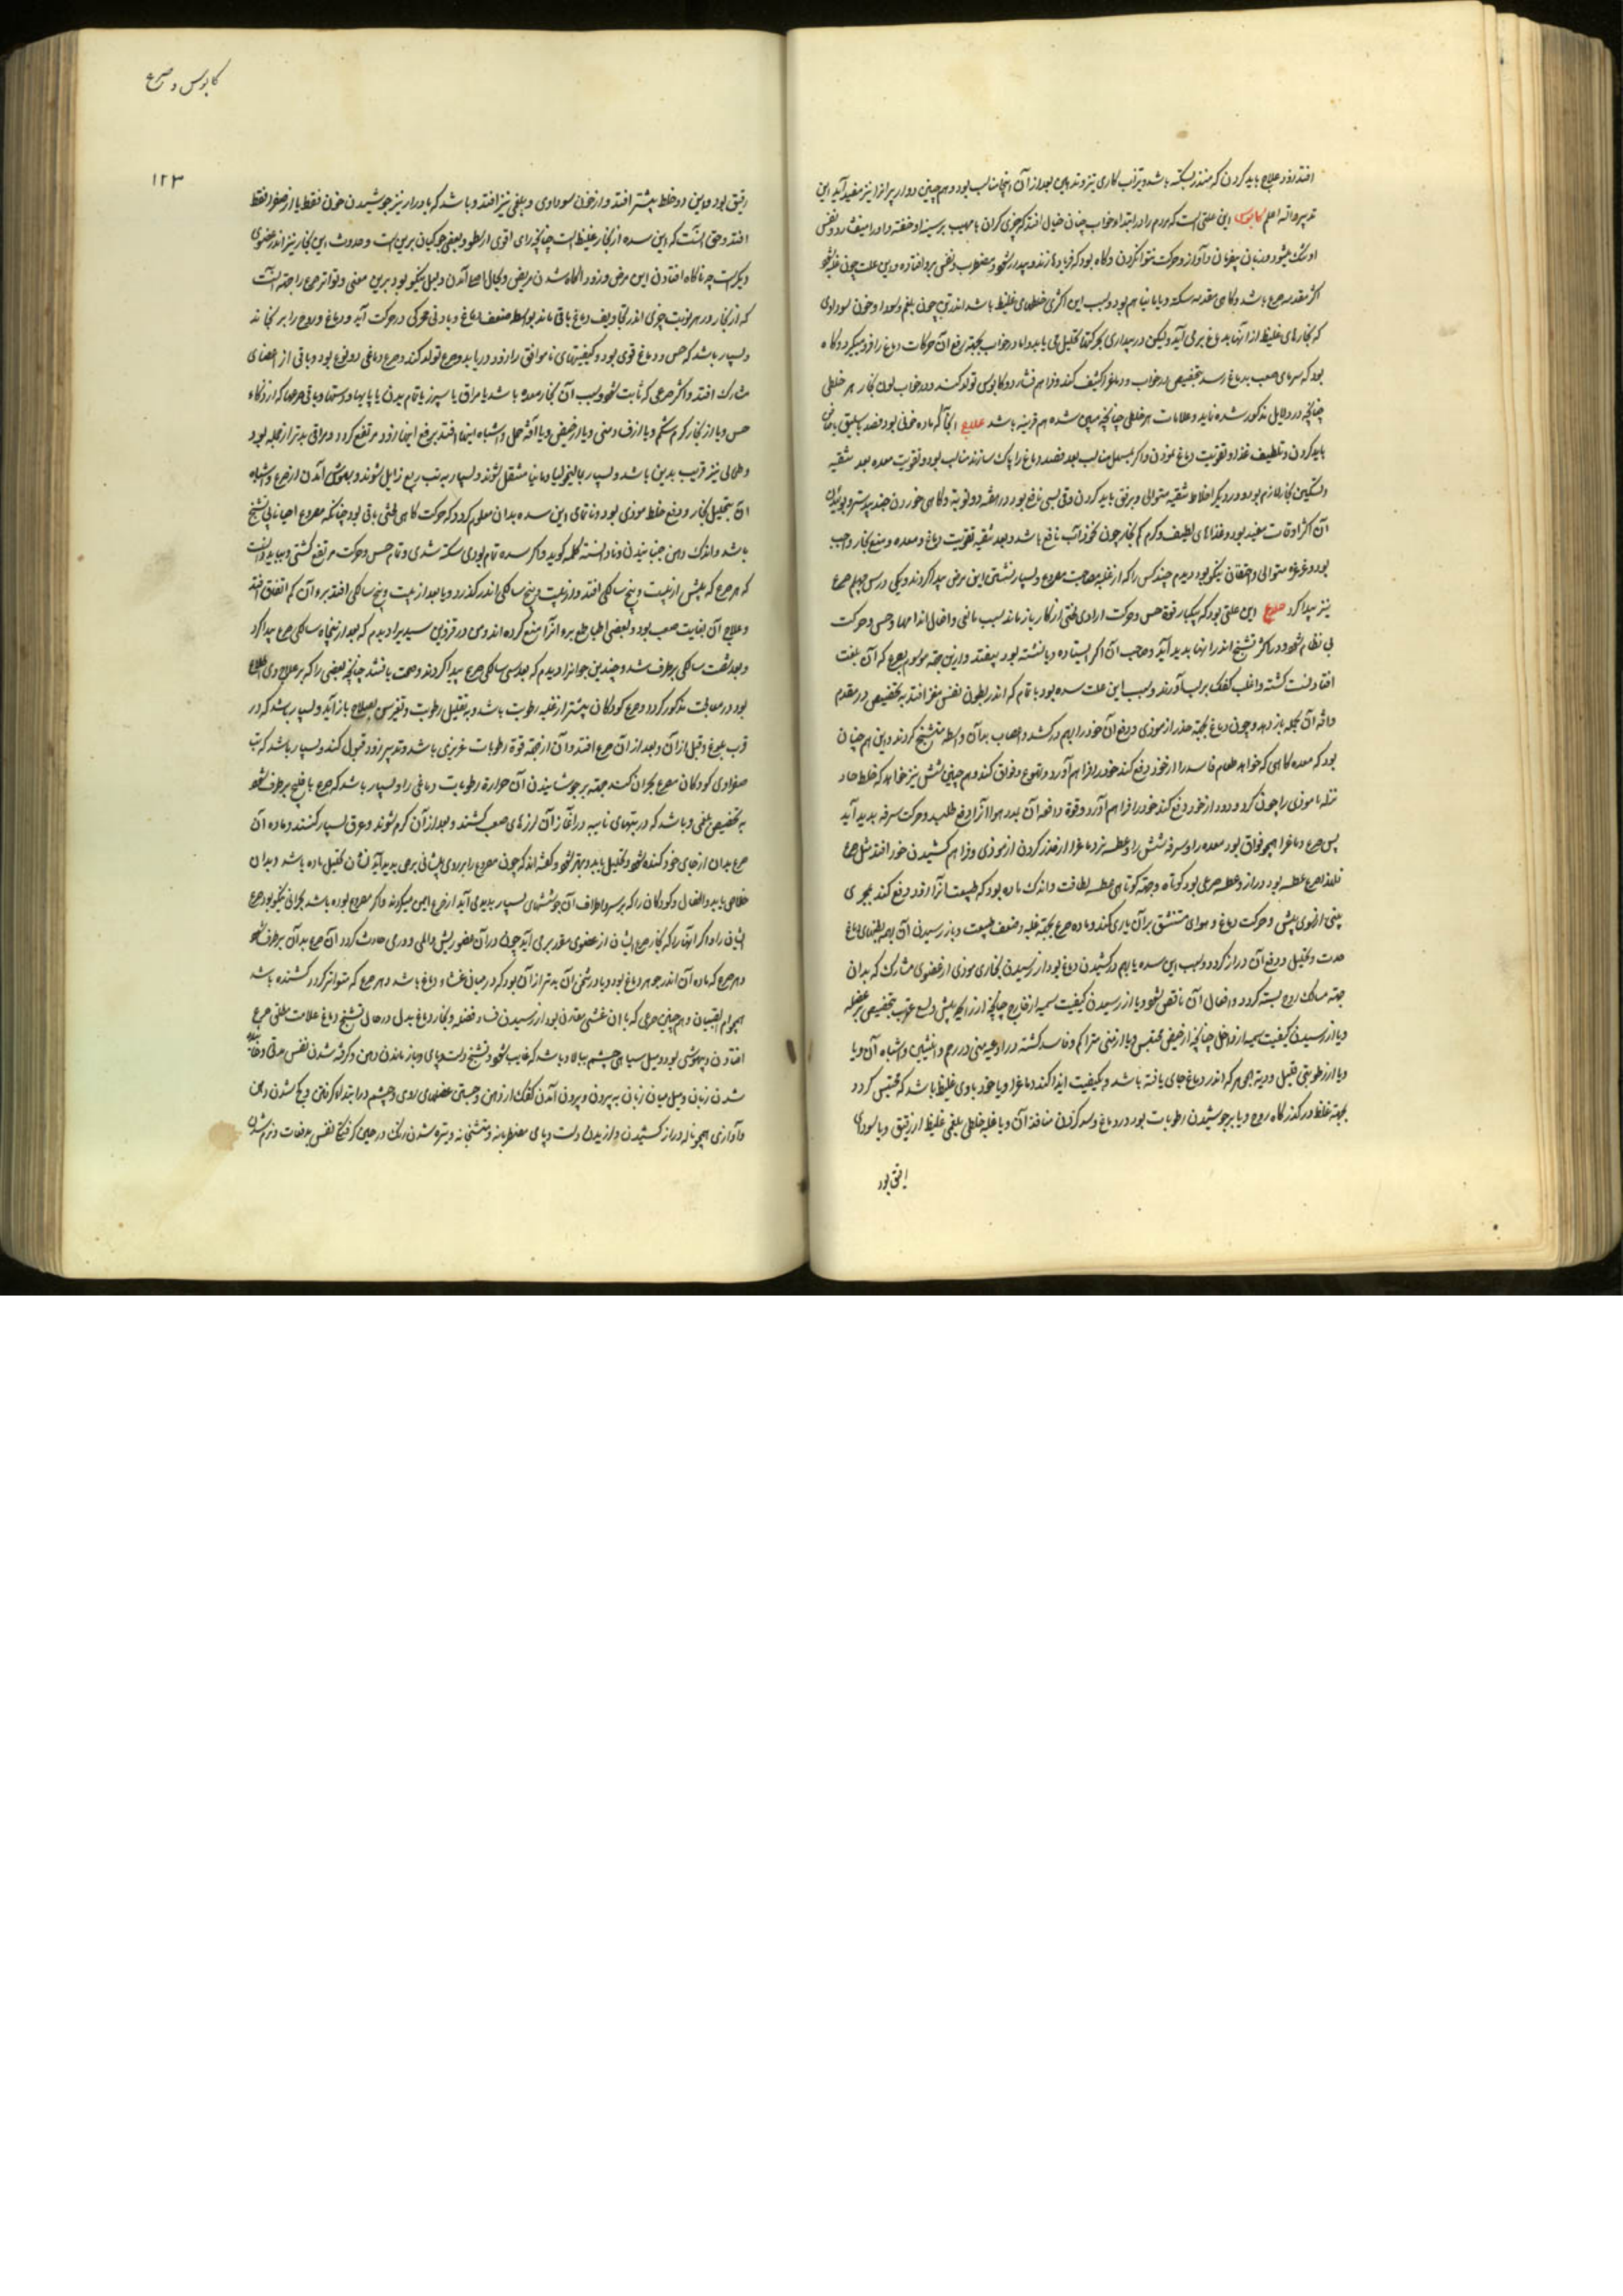 افتد زود علاج باید کردن که منذر بسکته باشد و
تدبیر و الله اعلم کابوس این علتی است که مردم را در ابتداء خواب چنان خیال افتد که چیزی گران با مهیب بر سینه او خفته و او را میفشارد و نفس
او تنگ میشود و زبان و آواز و حرکت نتوانکردن و گاه بود که فریاد و بیدار شود و مضطرب و نفس برو افتاده و این علت چون
اکثر مقدمه صرع باشد و گاهی مقدمه سکته و یا مانیا هم بود و سبب این اکثری خلطهای غلیظ باشد اندر تن چون بلغم و سودا و خون سوداوی
که بخارهای غلیظ از آنها بدماغ برمی آید ولیکن در بیداری بحرکتها تحلیل می یابد و اما در خواب بجهة رفع آن حرکات دماغ را فرو میگیرد و گاه
بود که سرمای صعب بدماغ رسد بتخصیص در خواب و دماغ را کثیف کند و فراهم فشارد و کابوس تولد کند و در خواب لون بخار هر خلطی
چنانچه در دلایل مذکور شده نماید و علامات هر خلطی چنانچه مبین شده هم قرینه باشد علاج آنجا که ماده خونی بود فصد باسلیق یا صافن
باید کردن و تلطیف غذا و تقویت دماغ نمودن و اگر بمسهل مناسب بعد فصد دماغ را پاک سازند مناسب بود و تقویت معده بعد تنقیه
و تسکین بخار لازم بود و در دیگر اخلاط تنقیه متوالی و برفق باید کردن وقی بسی نافع بود در هفته دو نوبت و گاهی خوردن جندبیدستر و بوئیدن
آن اکثر اوقات مفید بود و غذاهای لطیف و گرم کم بخار چون نخودآب نافع باشد و بعد تنقیه تقویت دماغ و معده و منع بخار واجب
بود و غرغره متوالی و احتقان نیکو بود و دیدم چند کس را که از غلبه مصاحبت مصروع و بسیار نشستن این مرض پیدا کردند و یکی در سن چهلم صرع
نیز پیدا کرد صرع این علتی بود که بیکبار قوة حس و حرکت ارادی از کار باز ماند بسبب مانعی و افعال اندامها و حس و حرکت
بی نظام شود و در اکثر تشنج اندر آنها پدید آید و صاحب آن اگر ایستاده و یا نشسته بود بیفتد و ازین جهة موسوم بصرع که آن بلغت
افتادنست گشته و اغلب کفک بر لب آورند و سبب این علت سده بود ناتمام که اندر بطون نفس مغز افتد بتخصیص در مقدم
و آنه آن بجمله باز دهد و چون دماغ بجهة حذر از موذی و دفع آن خود را بهم درکشد و اعصاب بدان واسطه متشنج گردند و این هم چنان
بود که معده گاهی که خواهد طعام فاسد را از خود دفع کند خود را فراهم آورد و تهوع و فواق کند و هم چنین شش نیز خواهد که خلط حاد
نزله یا موذی را چون گرد و دود از خود دفع کند خود را فراهم آورد و قوة دافعه آن بمدد هوا آنرا دفع طلبد و حرکت سرفه پدید آید
پس صرع دماغ را همچو فواق بود معده را و سرفه شش را و عطسه نیز دماغ را از حذر کردن از موذی و فراهم کشیدن خود افتد مثل صرع
فلهذا صرع عطسه بود دراز و عطسه صرعی بود کوتاه و جهة کوتاهی عطسه لطافت و اندک ماده بود که طبیعت آنرا زود دفع کند بمجری
بینی از سوی پیش و حرکت دماغ و هوای مستنشق بر آن یاری کند و ماده صرع بجهة غلبه و ضعف طبیعت و باز رسیدن آن بهمه بطنهای دماغ
مدت و تحلیل و دفع آن دراز گردد و سبب این سده یا بهم درکشیدن دماغ بود از رسیدن بخاری موذی از عضوی مشارک که بدان
جهة مسالک روح بسته گردد و افعال آن ناقص شود و یا از رسیدن کیفیت سمیه از خارج چنانچه از رایحه بیش و لسع عقرب بتخصیص بر عضله
و یا از رسیدن کیفیت سمیه از داخل چنانچه از حیض محتبس و یا از منی متراکم و فاسد گشته در اوعیه منی در رحم و انثیین و اشباه آن و یا
و یا از رطوبتی قلیل و ردی الجوهر که اندر دماغ جای یافته باشد و بکیفیت ایذا کند دماغ را و یا خود بادی غلیظ باشد که محتبس گردد
بجهة غلظ در گذرگاه روح و یا بر جوشیدن رطوبات بود در دماغ و سد کردن منافذ آن و یا غلبه خلطی بلغمی غلیظ یا رقیق و یا سوداوی
رقیق بود
کابوس و صرع
۱۲۳
رقیق بود و این دو خلط بیشتر افتد و از خون سوداوی و بلغمی نیز افتد و باشد که بادرار نیز جوشیدن خون فقط یا از صفرا فقط
افتد و حق آنست که این سده از بخار غلیظ است چنانچه رای اقوی ارسطو و بعضی جوکیان برین است و حدوث این بخار نیز اندر عضوی
دیگرست چه ناگاه افتادن این مرض و زود آگاه شدن مریض و بحال اصلی آمدن دلیل نیکو بود برین معنی و تواتر صرع را جهة آنست
که از بخار در هر نوبت چیزی اندر تجاویف دماغ باقی ماند بواسطه ضعف دماغ و بادنی محرکی در حرکت آید و دماغ و روح را برنجاند
و بسیار باشد که حس دماغ قوی بود و کیفیتهای ناموافق را زود دریابد و صرع تولد کند و صرع دماغی دو نوع بود و باقی از اعضای
مشارک افتد و اکثر صرعی که ثابت شود سبب آن بخار معده باشد یا مراق یا سپرز یا تمام بدن یا پایها و دستها و باقی صرعها که از ذکاء
حس و یا از بخار کرم شکم و یا از منی و یا از حیض و یا آفة حمل و اشباه اینها افتد برفع اینها زود مرتفع گردد و مراقی بدتر از جمله بود
و طحالی نیز قریب بدین باشد و بسیار بمالیخولیا و مانیا منتقل شوند و بسیار به تب ربع زایل شوند و بهوش آمدن از صرع و اشباه
آن بتحلیل بخار و دفع خلط موذی بود و ناتمامی این سده بدان معلوم گردد که حرکت گاهی باقی بود چنانکه مصروع احیانا بی تشنج
باشد و اندک دهن جنبانیدن و نادانسته کلمه گوید و اگر سده تمام بودی سکته شدی و تمام حس و حرکت مرتفع گشتی و بباید دانست
که هر صرع که پیش از بیست و پنج سالگی افتد و از بیست و پنج سالگی اندر گذرد و یا بعد از بیست و پنج سالگی افتد برو آن کم اتفاق افتد
و علاج آن بغایت صعب بود و بعضی اطبا طمع برء آنرا منع کرده اند و من در قزوین سیدی را دیدم که بعد از پنجاه سالگی صرع پیدا کرد
و بعد شصت سالگی برطرف شد و چندین جوانرا دیدم که بعد سی سالگی صرع پیدا کردند و صحت یافتند چنانچه بعضی را که بر علاج وی اطلاع
بود در معالجت مذکور گردد و صرع کودکان بیشتر از غلبه رطوبت باشد و به تقلیل رطوبت و تغیر سن بصلاح باز آید و بسیار باشد که در
قرب بلوغ و قبل از آن و بعد از آن صرع افتد و آن از جهة قوة رطوبات غریزی باشد و تدبیر زود قبول کند و بسیار باشد که تب
صفراوی کودکان مصروع بحران کند جهة بر جوشانیدن آن حرارة رطوبات دماغی را و بسیار باشد که صرع با فلج برطرف شود
بتخصیص بلغمی و باشد که در تبهای نایبه در آغاز آن لرزهای صعب کشند و بعد از آن گرم شوند و عرق بسیار کنند و ماده آن
صرع بدان از جای خود کنده شود و تحلیل یابد و بهتر شود و گفته اند که چون مصروع را بر روی پیشانی برصی پدید آید نشان تحلیل ماده باشد و بدان
خلاصی یابد و اطفال و کودکان را که بر سر و اطراف آن جوششهای بسیار پدید می آید از صرع ایمن میگردند و اگر مصروع بوده باشد بحرانی نیکو بود صرع
ایشان را و اگر آنها را که بخار صرع ایشان از عضوی مقرر برمی آید چون در آن عضو ریش و المی و ورمی حادث گردد آن صرع بدان برطرف شود
و هر صرع که ماده آن اندر جوهر دماغ بود و یا در بخش آن بدتر از آن بود که در میان غشاء دماغ باشد و هر صرع که متواتر گردد کشنده باشد
همچو ام الصبیان و هم چنین صرعی که با آن غشی مقارن بود از رسیدن فساد فضله و بخار دماغ بدل در حال تشنج دماغ علامت مطلق صرع
افتادن و بیهوشی بود و میل سیاهی چشم ببالا و باشد که غایب شود و تشنج دست و پای و باز ماندن دهن و گرفته شدن نفس
شدن زبان و میل میان زبان به بیرون و بیرون آمدن کفک از دهن و جستن عضلهای روی و چشم در ابتداء گرفتن و کج شدن دهن
و آوازی همچو ناله دراز کشیدن و لرزیدن دست و پای مضطربانه و متشنجانه و تیره شدن رنگ در حین گرفتگی نفس بدفعات و نرم شدن